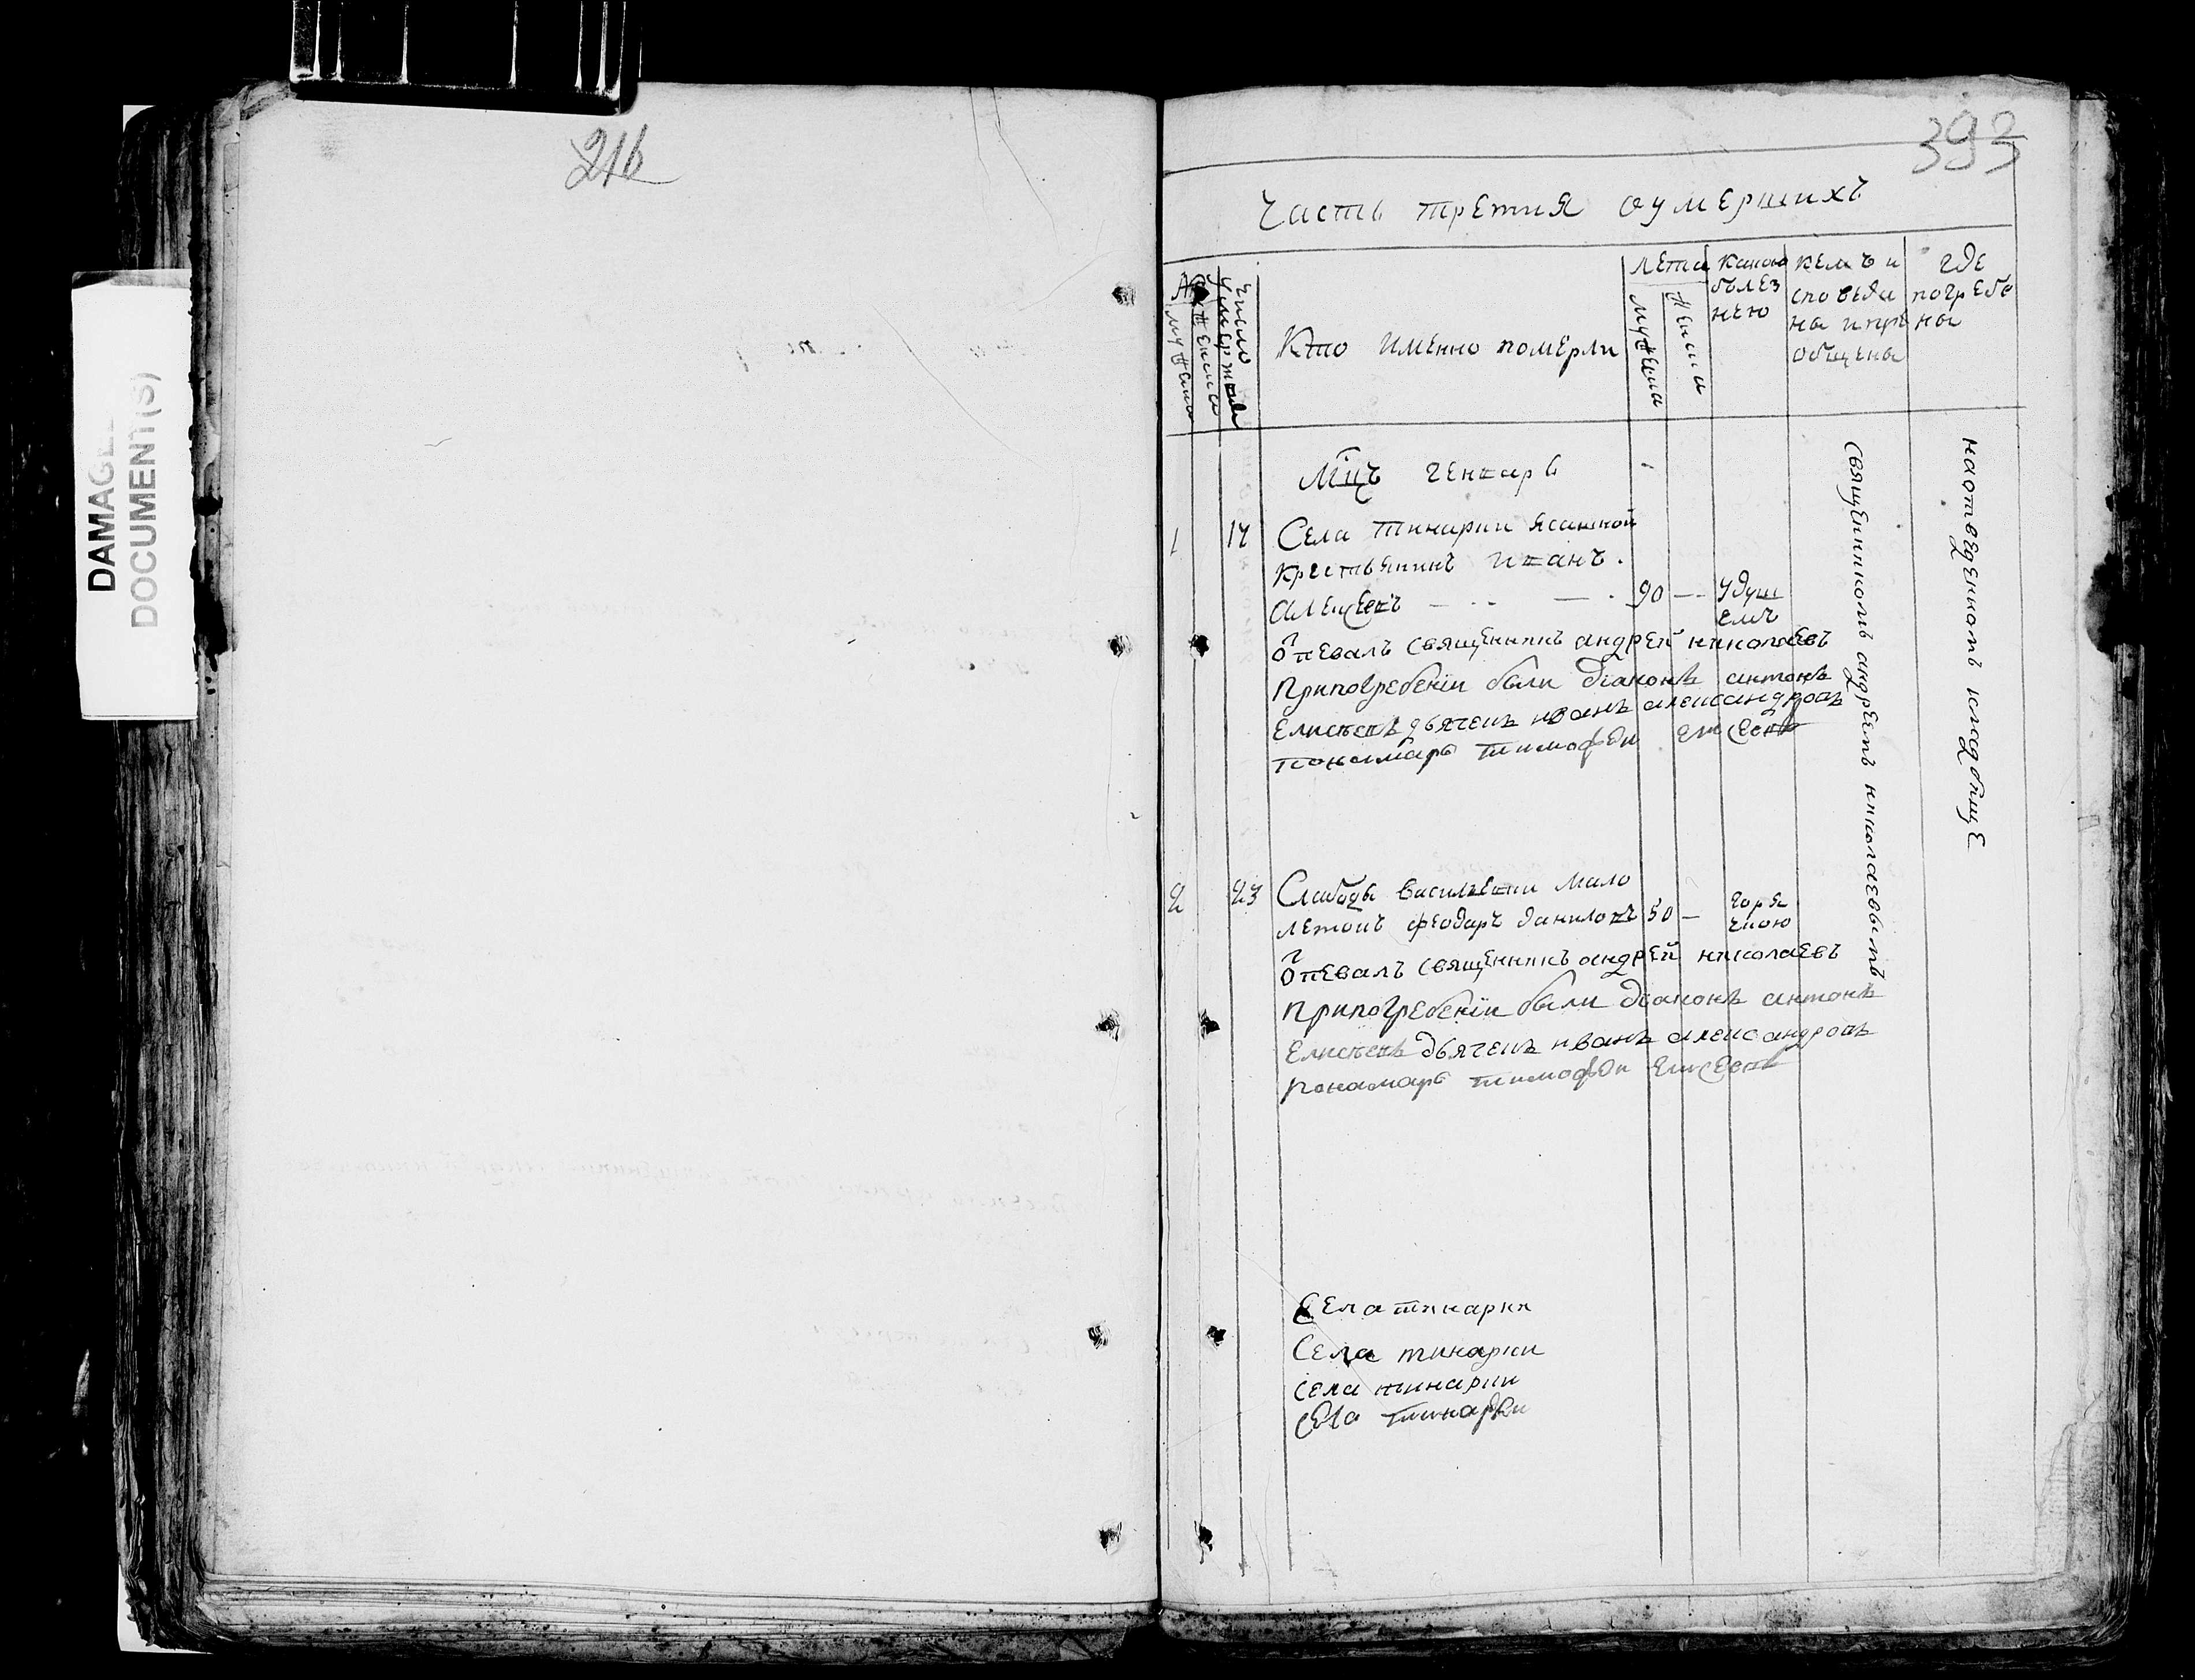 DAMAGED
DOCUMENT(S)
216
393
Часть третия оумершихъ
Число
Умертвия
мужеска
женска
Кто именно померли
лета
мужеска
женска
какою
болез
нею
кемъ и
споведа
ны и при
общены
где
погребе
ны
Мцъ генварь
1 17 Села тинарки ясашной
крестьянинъ иванъ .
алексеевъ — 90 — удуш
емъ
отпевалъ священникъ андрей николаевъ
при погребении были диаконъ антонъ
елисеевъ дьячекъ иванъ александровъ
понамарь тимофей
священникомъ андреемъ николаевымъ
на отведенномъ кладбище
2 23 Слабоды васильевки мало
летокъ феодаръ даниловъ 50 — горя
чкою
отпевалъ священникъ андрей николаевъ
при погребении были диаконъ антонъ
елисеевъ дьячекъ иванъ александровъ
понамарь тимофей
Села тинарки
Села тинарки
села тинарки
села тинарки